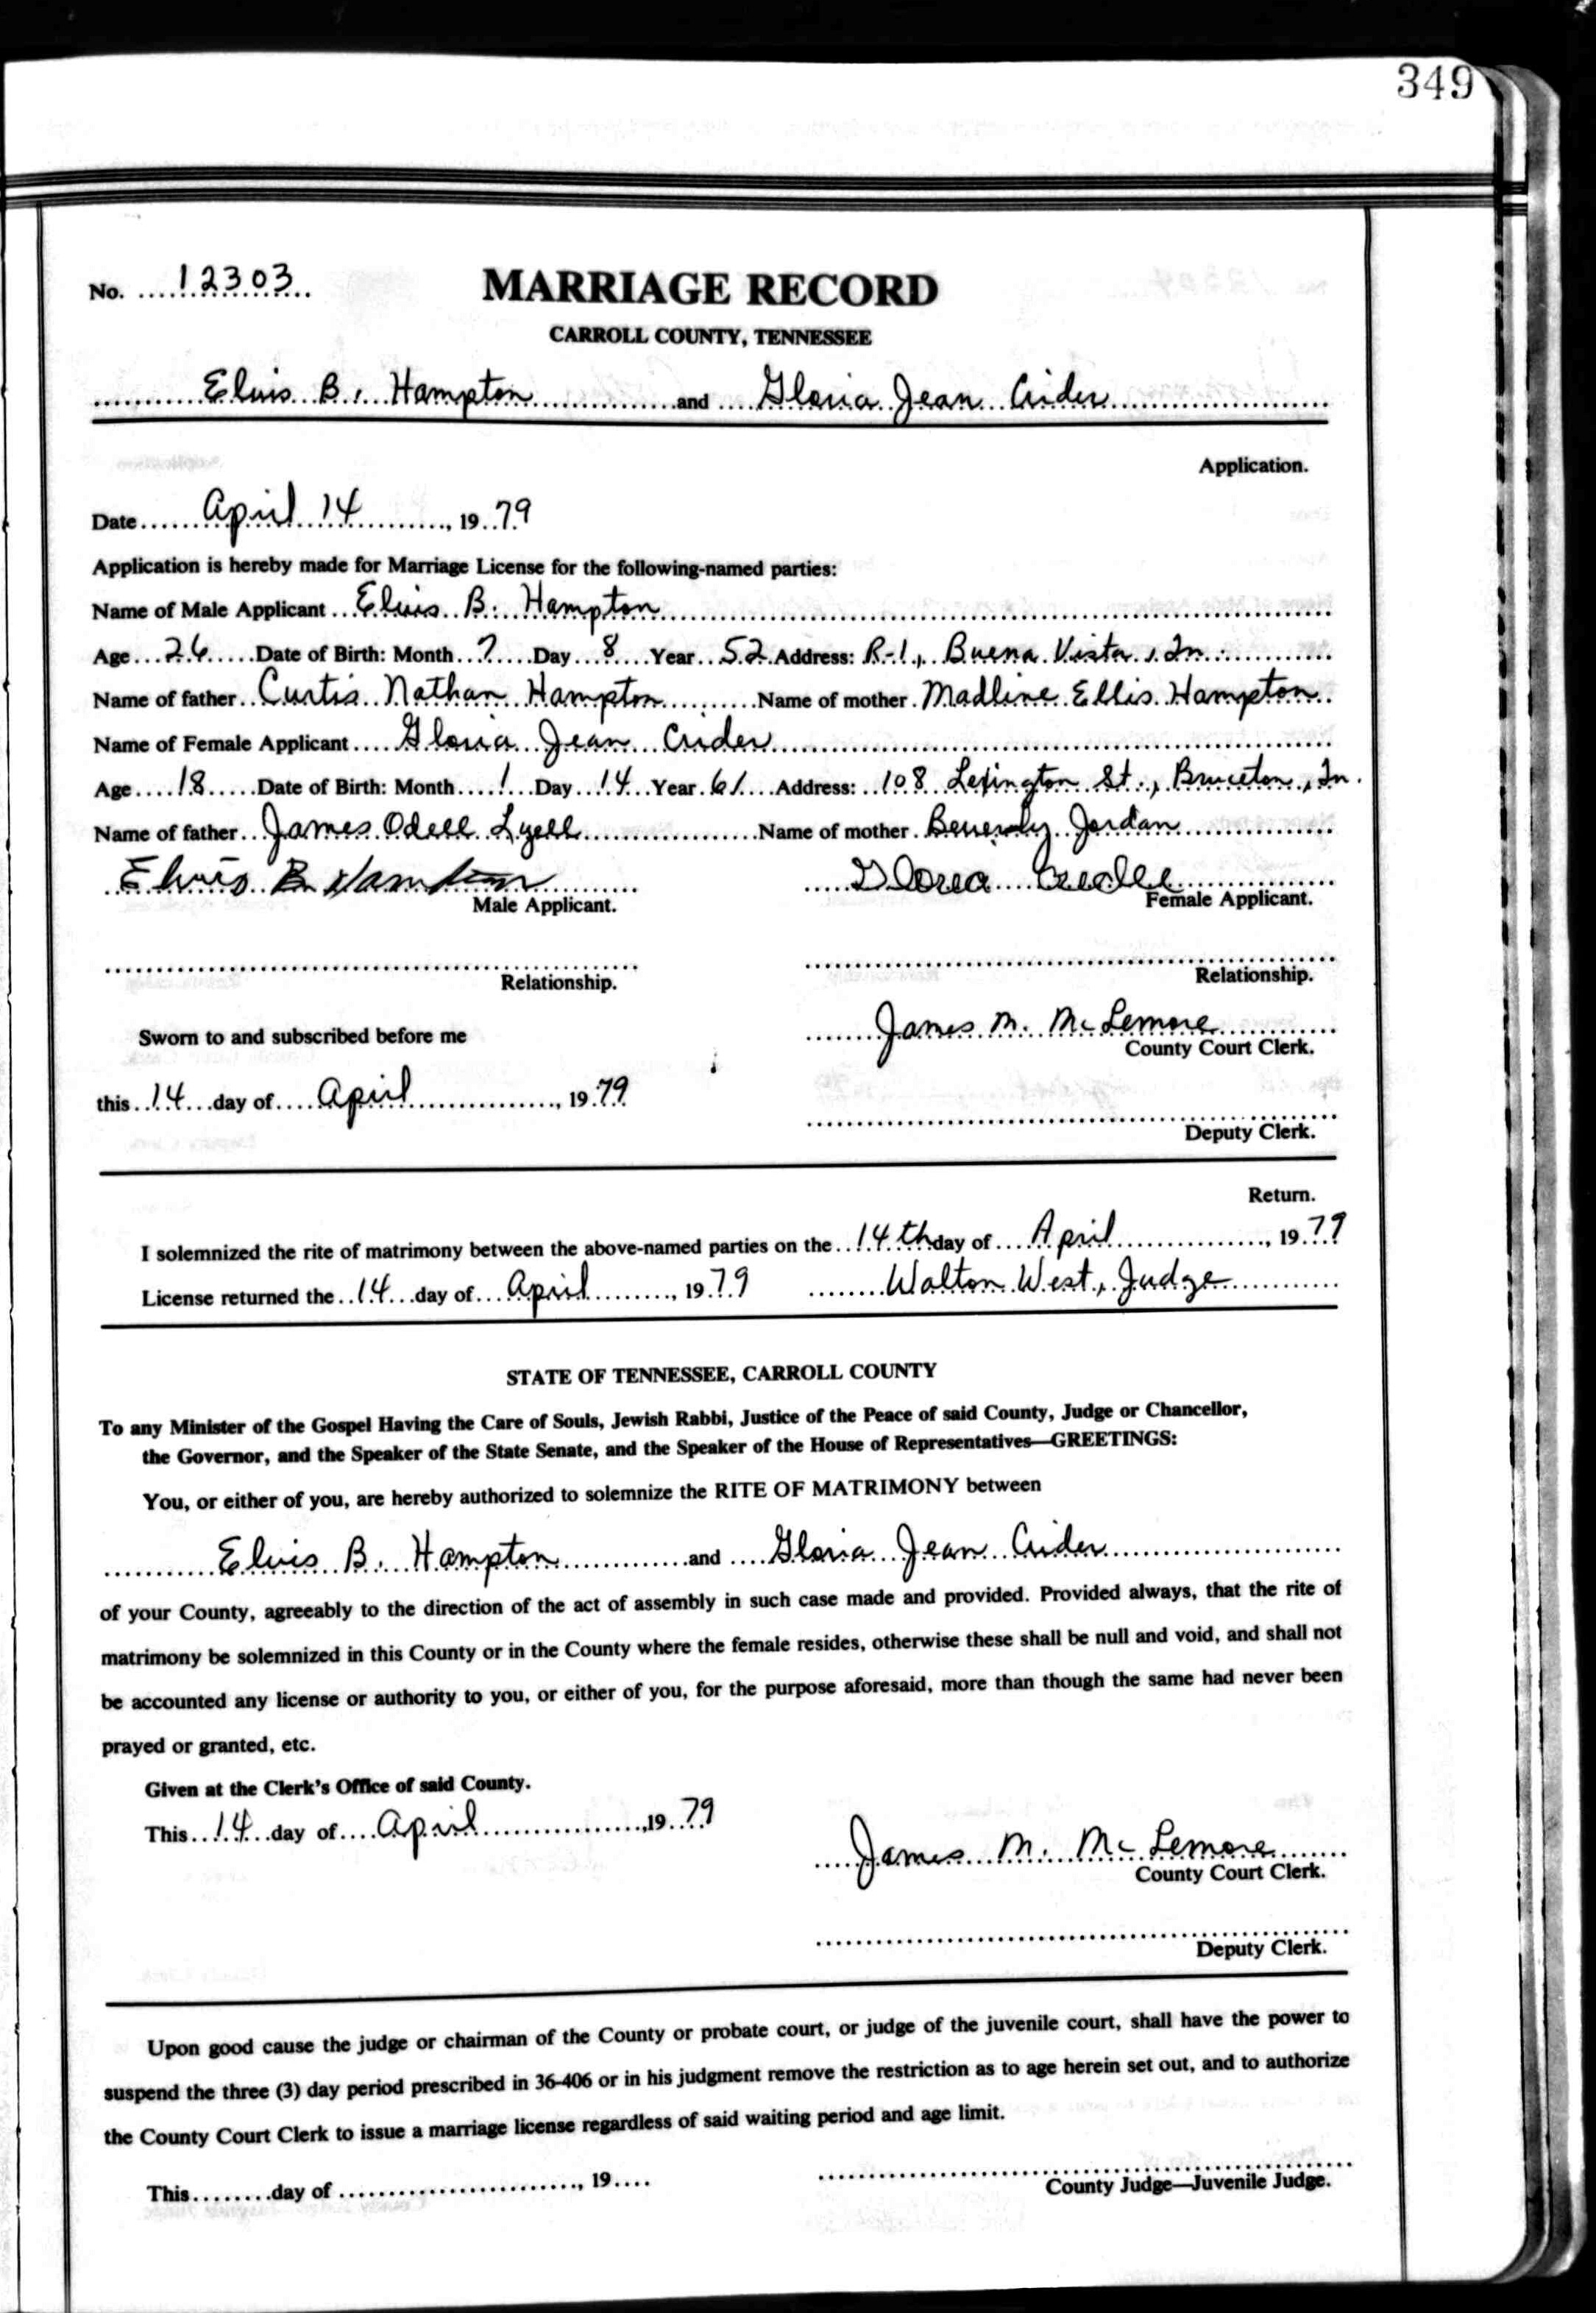 349
No. 12303
MARRIAGE RECORD
CARROLL COUNTY, TENNESSEE
Elvis B. Hampton and Gloria Jean Crider
Application.
Date April 14, 1979
Application is hereby made for Marriage License for the following-named parties:
Name of Male Applicant Elvis B. Hampton
Age 26 Date of Birth: Month 7 Day 8 Year 52 Address: R-1, Buena Vista, Tn
Name of father Curtis Nathan Hampton Name of mother Madline Ellis Hampton
Name of Female Applicant Gloria Jean Crider
Age 18 Date of Birth: Month 1 Day 14 Year 61 Address: 108 Lexington St., Bruceton, Tn.
Name of father James Odell Lyell Name of mother Beverly Jordan
Elvis B Hampton Gloria Crider
Male Applicant. Female Applicant.
Relationship. Relationship.
Sworn to and subscribed before me James M. McLemore
County Court Clerk.
this 14 day of April, 1979
Deputy Clerk.
Return.
I solemnized the rite of matrimony between the above-named parties on the 14th day of April, 1979
License returned the 14 day of April, 1979 Walton West, Judge
STATE OF TENNESSEE, CARROLL COUNTY
To any Minister of the Gospel Having the Care of Souls, Jewish Rabbi, Justice of the Peace of said County, Judge or Chancellor,
the Governor, and the Speaker of the State Senate, and the Speaker of the House of Representatives—GREETINGS:
You, or either of you, are hereby authorized to solemnize the RITE OF MATRIMONY between
Elvis B. Hampton and Gloria Jean Crider
of your County, agreeably to the direction of the act of assembly in such case made and provided. Provided always, that the rite of
matrimony be solemnized in this County or in the County where the female resides, otherwise these shall be null and void, and shall not
be accounted any license or authority to you, or either of you, for the purpose aforesaid, more than though the same had never been
prayed or granted, etc.
Given at the Clerk's Office of said County.
This 14 day of April, 1979
James M. McLemore
County Court Clerk.
Deputy Clerk.
Upon good cause the judge or chairman of the County or probate court, or judge of the juvenile court, shall have the power to
suspend the three (3) day period prescribed in 36-406 or in his judgment remove the restriction as to age herein set out, and to authorize
the County Court Clerk to issue a marriage license regardless of said waiting period and age limit.
This........day of ........................, 19....
County Judge—Juvenile Judge.